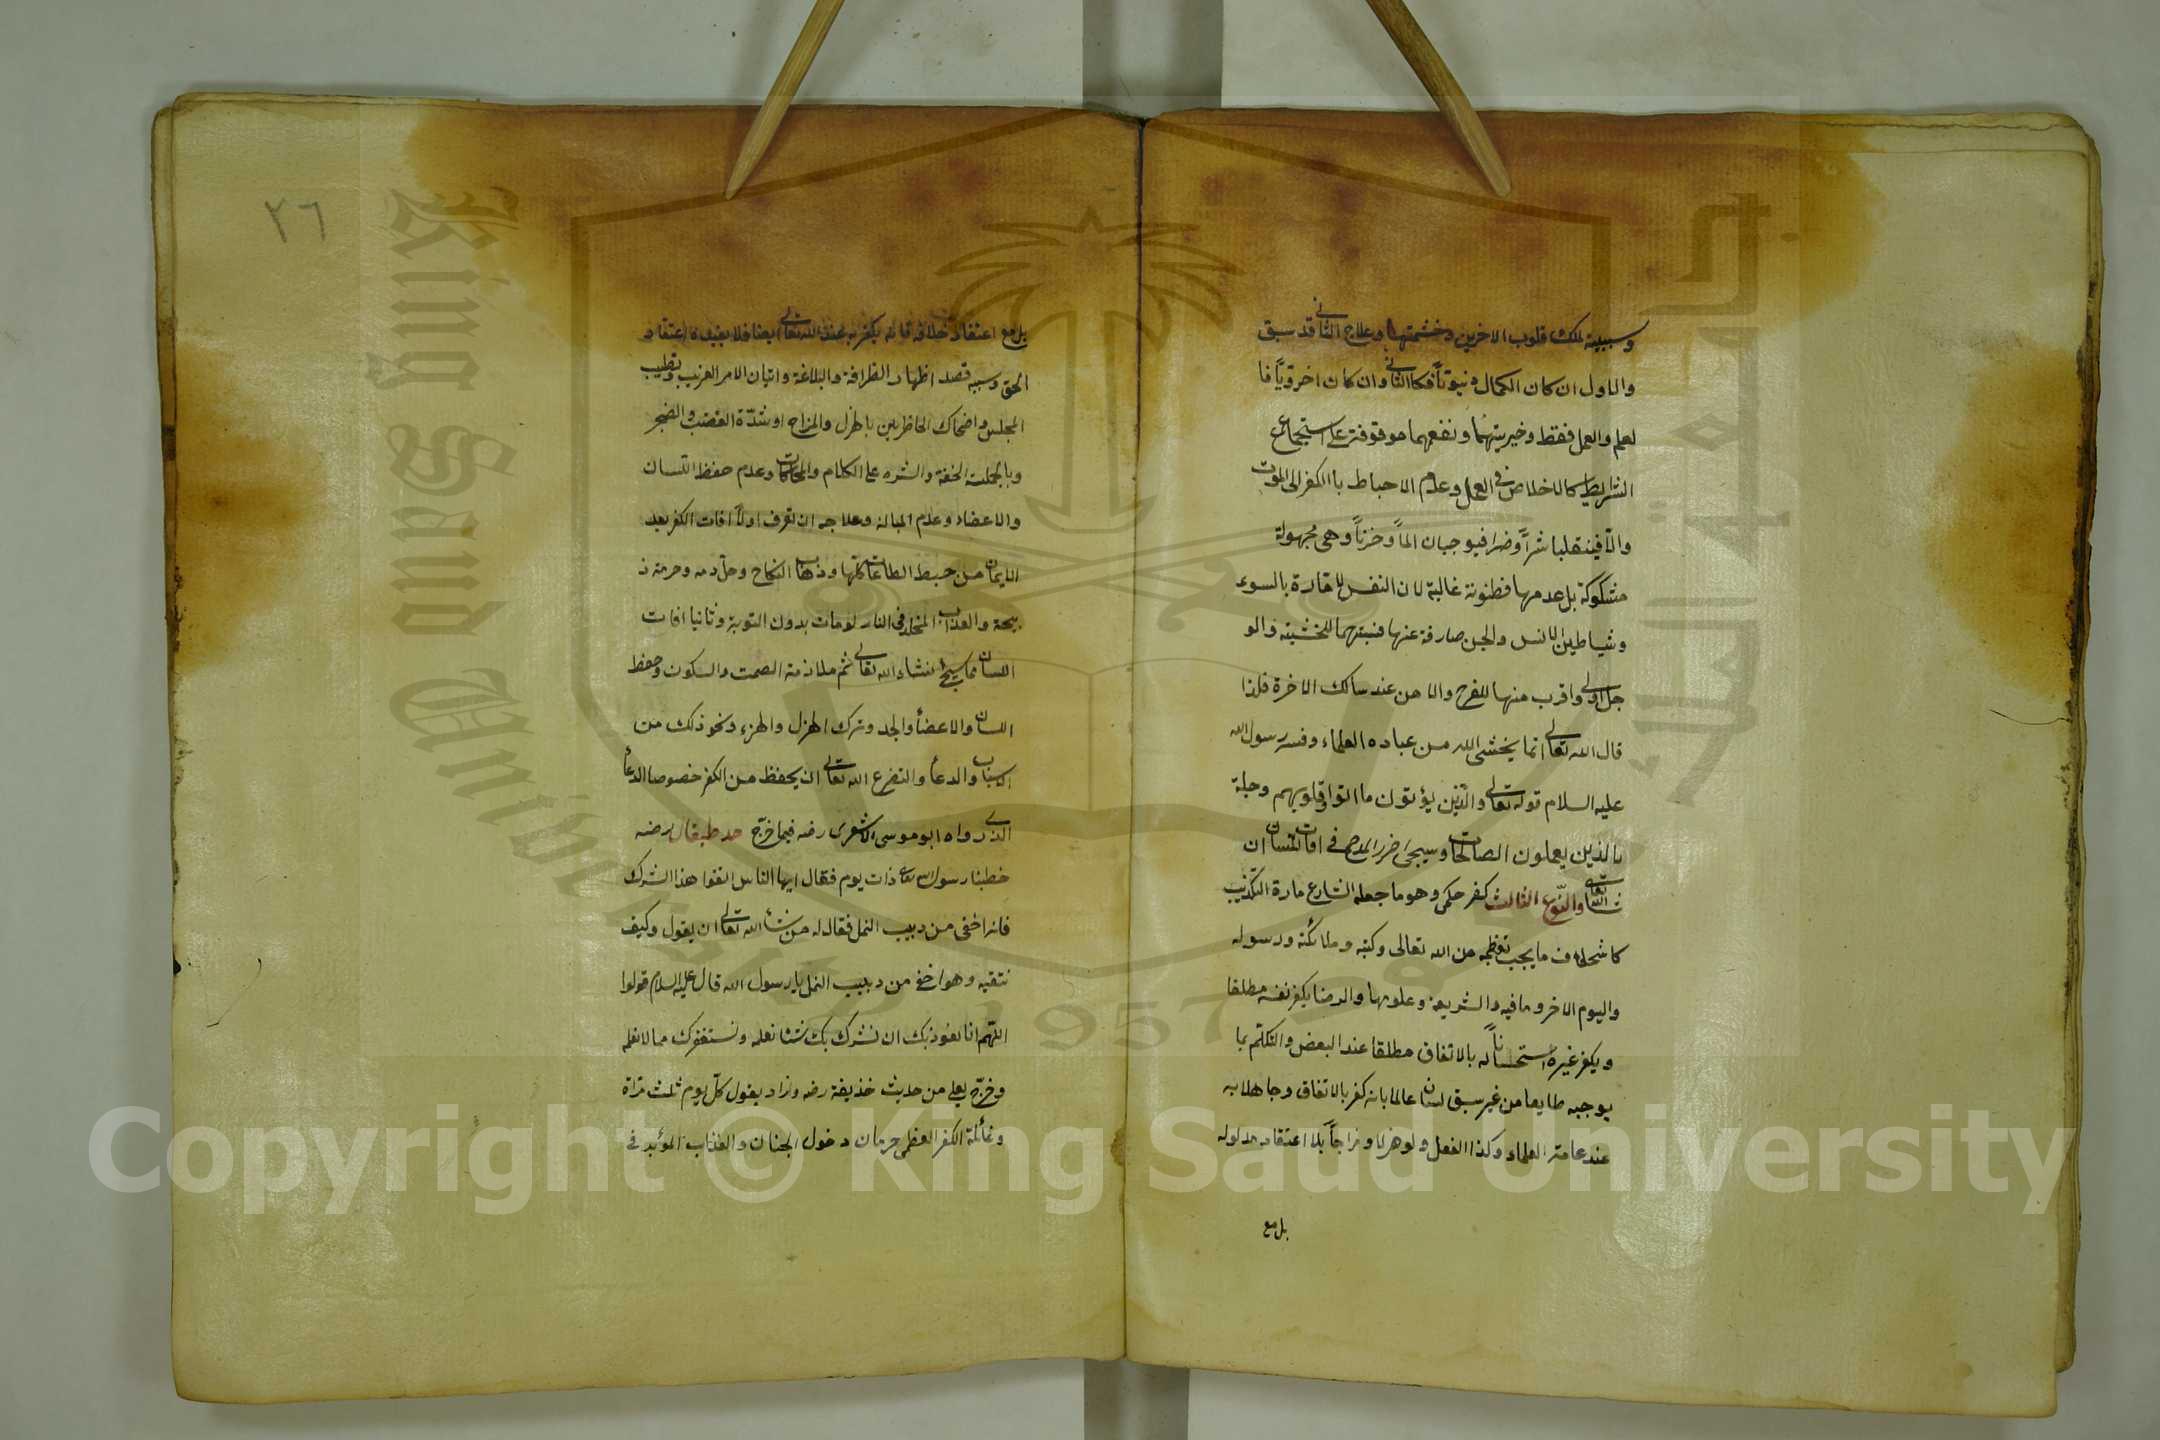 وسببية لملك قلوب الاخرين وخشمتها وعلاج الثانى قد سبق
والاول ان كان الكمال دنيويّاً فكالثانى وان كان اخرويّاً فا
لعلم والعمل فقط وخيريتهما ونفعهما موقوفة على استجماع
الشرايط كالاخلاص فى العمل وعدم الاحباط باالكفر الى الموت
والّا فينقلبا شرّاً وضرا فيوجبان الماً وحزناً وهى مجهولة
مشكوكة بل عدمها مظنونة غالبة لان النفس لامّارة بالسوء
وشياطين الانس والجن صارفة عنها فنبتهما للخشية والو
جل اولى واقرب منها للفرح والامن عند سالك الاخرة فلذا
قال الله تعالى انما يخشى الله من عباده العلماء وفسر رسول الله
عليه السلام قوله تعالى والّذين يؤتون ما اتوا وقلوبهم وجلة
بالذين يعملون الصالحات وسيجى ضرر المدح فى افات اللسان ان
شاء الله تعالى والنّوع الثالث كفر حكمى وهو ما جعله الشارع امارة التكذيب
كاستخفاف ما يجب تعظيمه من الله تعالى وكتبه وملائكته ورسوله
واليوم الاخر وما فيه والشريعة وعلومها والرضا بكفر نفسه مطلقا
وبكفر غيره استحساناً له بالاتفاق مطلقا عند البعض والتكلّم بما
يوجبه طايعا من غير سبق لسان عالما بانه كفر بالاتفاق وجاهلا به
عند عامة العلماء وكذا الفعل ولو هزلا ومزاحاً بلا اعتقاد مدلوله
بل مع
٢٦
بل مع اعتقاد خلافه فانه يكفر به عند الله تعالى ايضا فلا يفيده اعتقاد
الحق وسببه قصد اظهار الظرافة والبلاغة واتيان الامر الغريب وتطييب
المجلس واضحاك الحاظرين بالهزل والمزاح او شدّة الغضب والضجر
وبالجملة الخفة والشره على الكلام والمحاكات وعدم حفظ اللسان
والاعضاء وعدم المبالة وعلاجه ان تعرف اولاً افات الكفر بعد
الايمان من حبط الطاعات كلّها وذهاب النكاح وحلّ دمه وحرمة ذ
بيحة والعذاب المخلد فى النار لو مات بدون التوبة وثانيا افات
اللسان مما سيجئ انشاء الله تعالى ثم ملازمة الصمت والسكون وحفظ
اللسان والاعضأ والجد وترك الهزل والهزء ونحو ذلك من
الاسباب والدعأ والتضرع الله تعالى ان يحفظ من الكفر خصوصا الدعأ
الذى رواه ابو موسى الاشعرى رضه فيما خرّج حد طب قال رضه
خطبنا رسول الله ذات يوم فقال ايها الناس اتقوا هذا الشرك
فانه اخفى من دبيب النمل فقال له من شأ الله تعالى ان يقول وكيف
نتقيه وهو اخفى من دبيب النمل يا رسول الله قال عليه السلام قولوا
اللّهم انا نعوذ بك ان نشرك بك شئا نعلمه ونستغفرك مما لا نعلمه
وخرّج يعلى من حديث خذيفة رضه وزاد يقول كلّ يوم ثلث مرّاة
وغائلة الكفر العظمى حرمان دخول الجنان والعذاب المؤبد فى
King Saud University
1957
Copyright © King Saud University